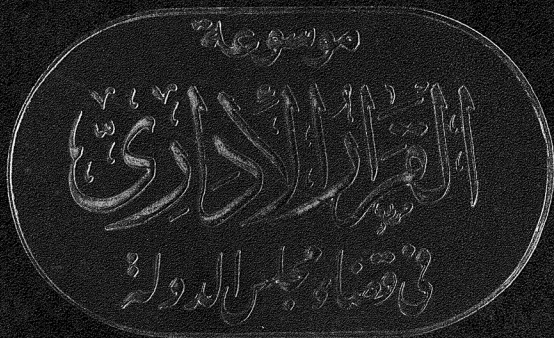 موسوعة
القرار الإدارى
فى قضاء مجلس الدولة